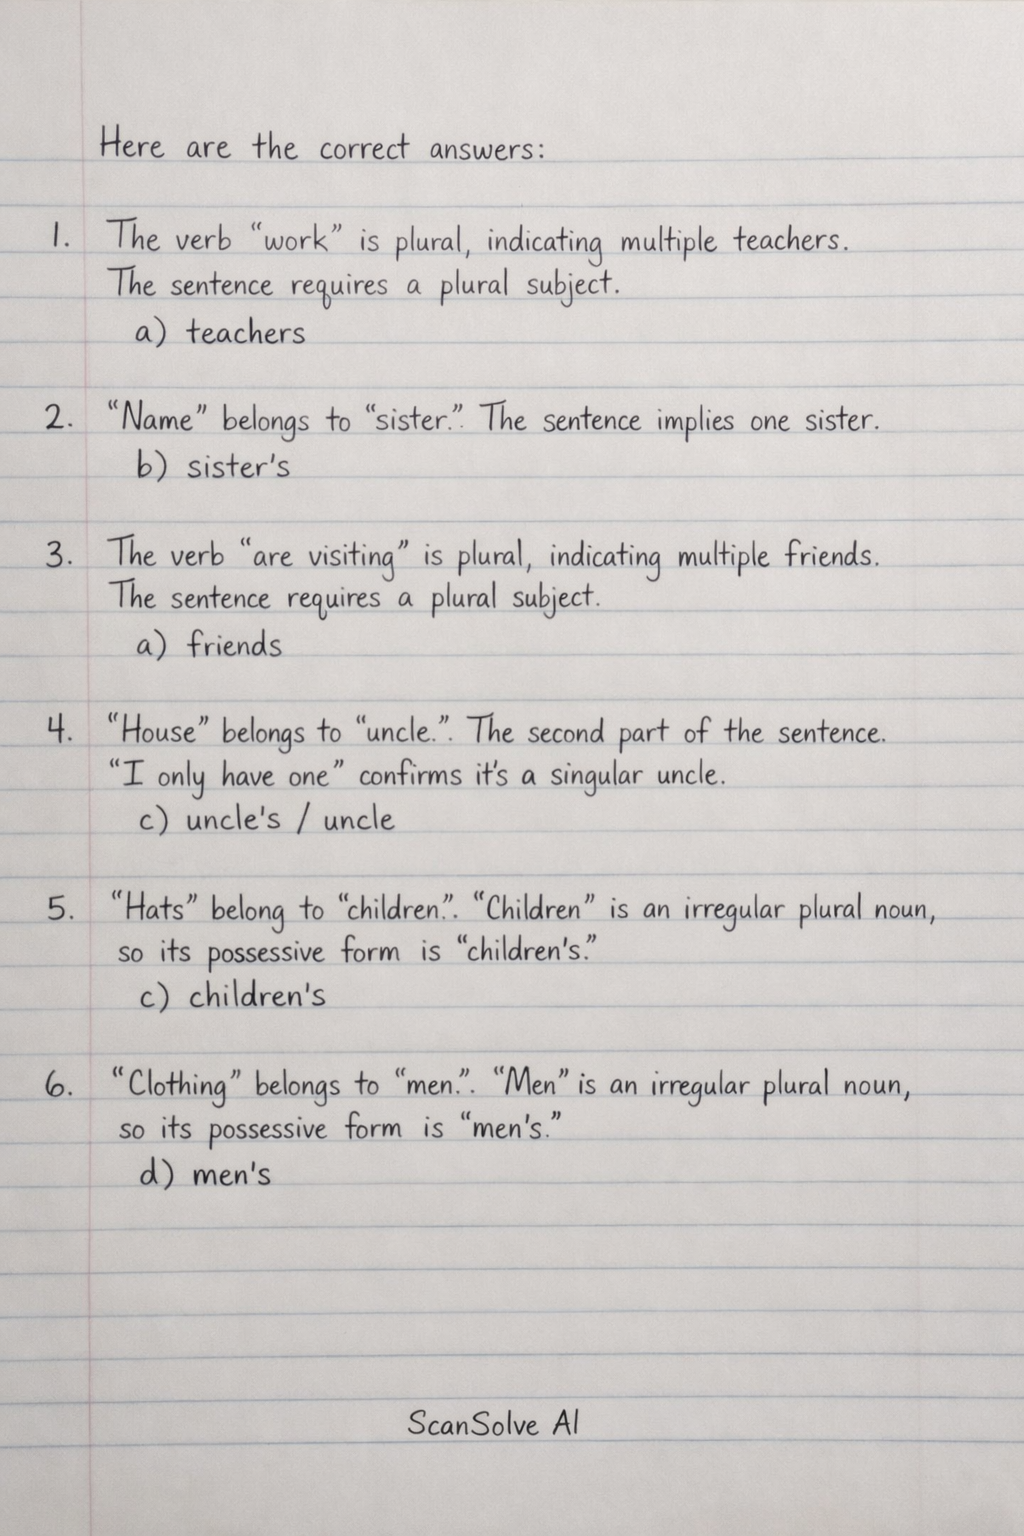 Here are the correct answers:
1. The verb “work” is plural, indicating multiple teachers.
The sentence requires a plural subject.
a) teachers
2. “Name” belongs to “sister.”. The sentence implies one sister.
b) sister's
3. The verb “are visiting” is plural, indicating multiple friends.
The sentence requires a plural subject.
a) friends
4. “House” belongs to “uncle.”. The second part of the sentence.
“I only have one” confirms it's a singular uncle.
c) uncle's / uncle
5. “Hats” belong to “children.”. “Children” is an irregular plural noun,
so its possessive form is “children's.”
c) children's
6. “Clothing” belongs to “men.”. “Men” is an irregular plural noun,
so its possessive form is “men's.”
d) men's
ScanSolve AI